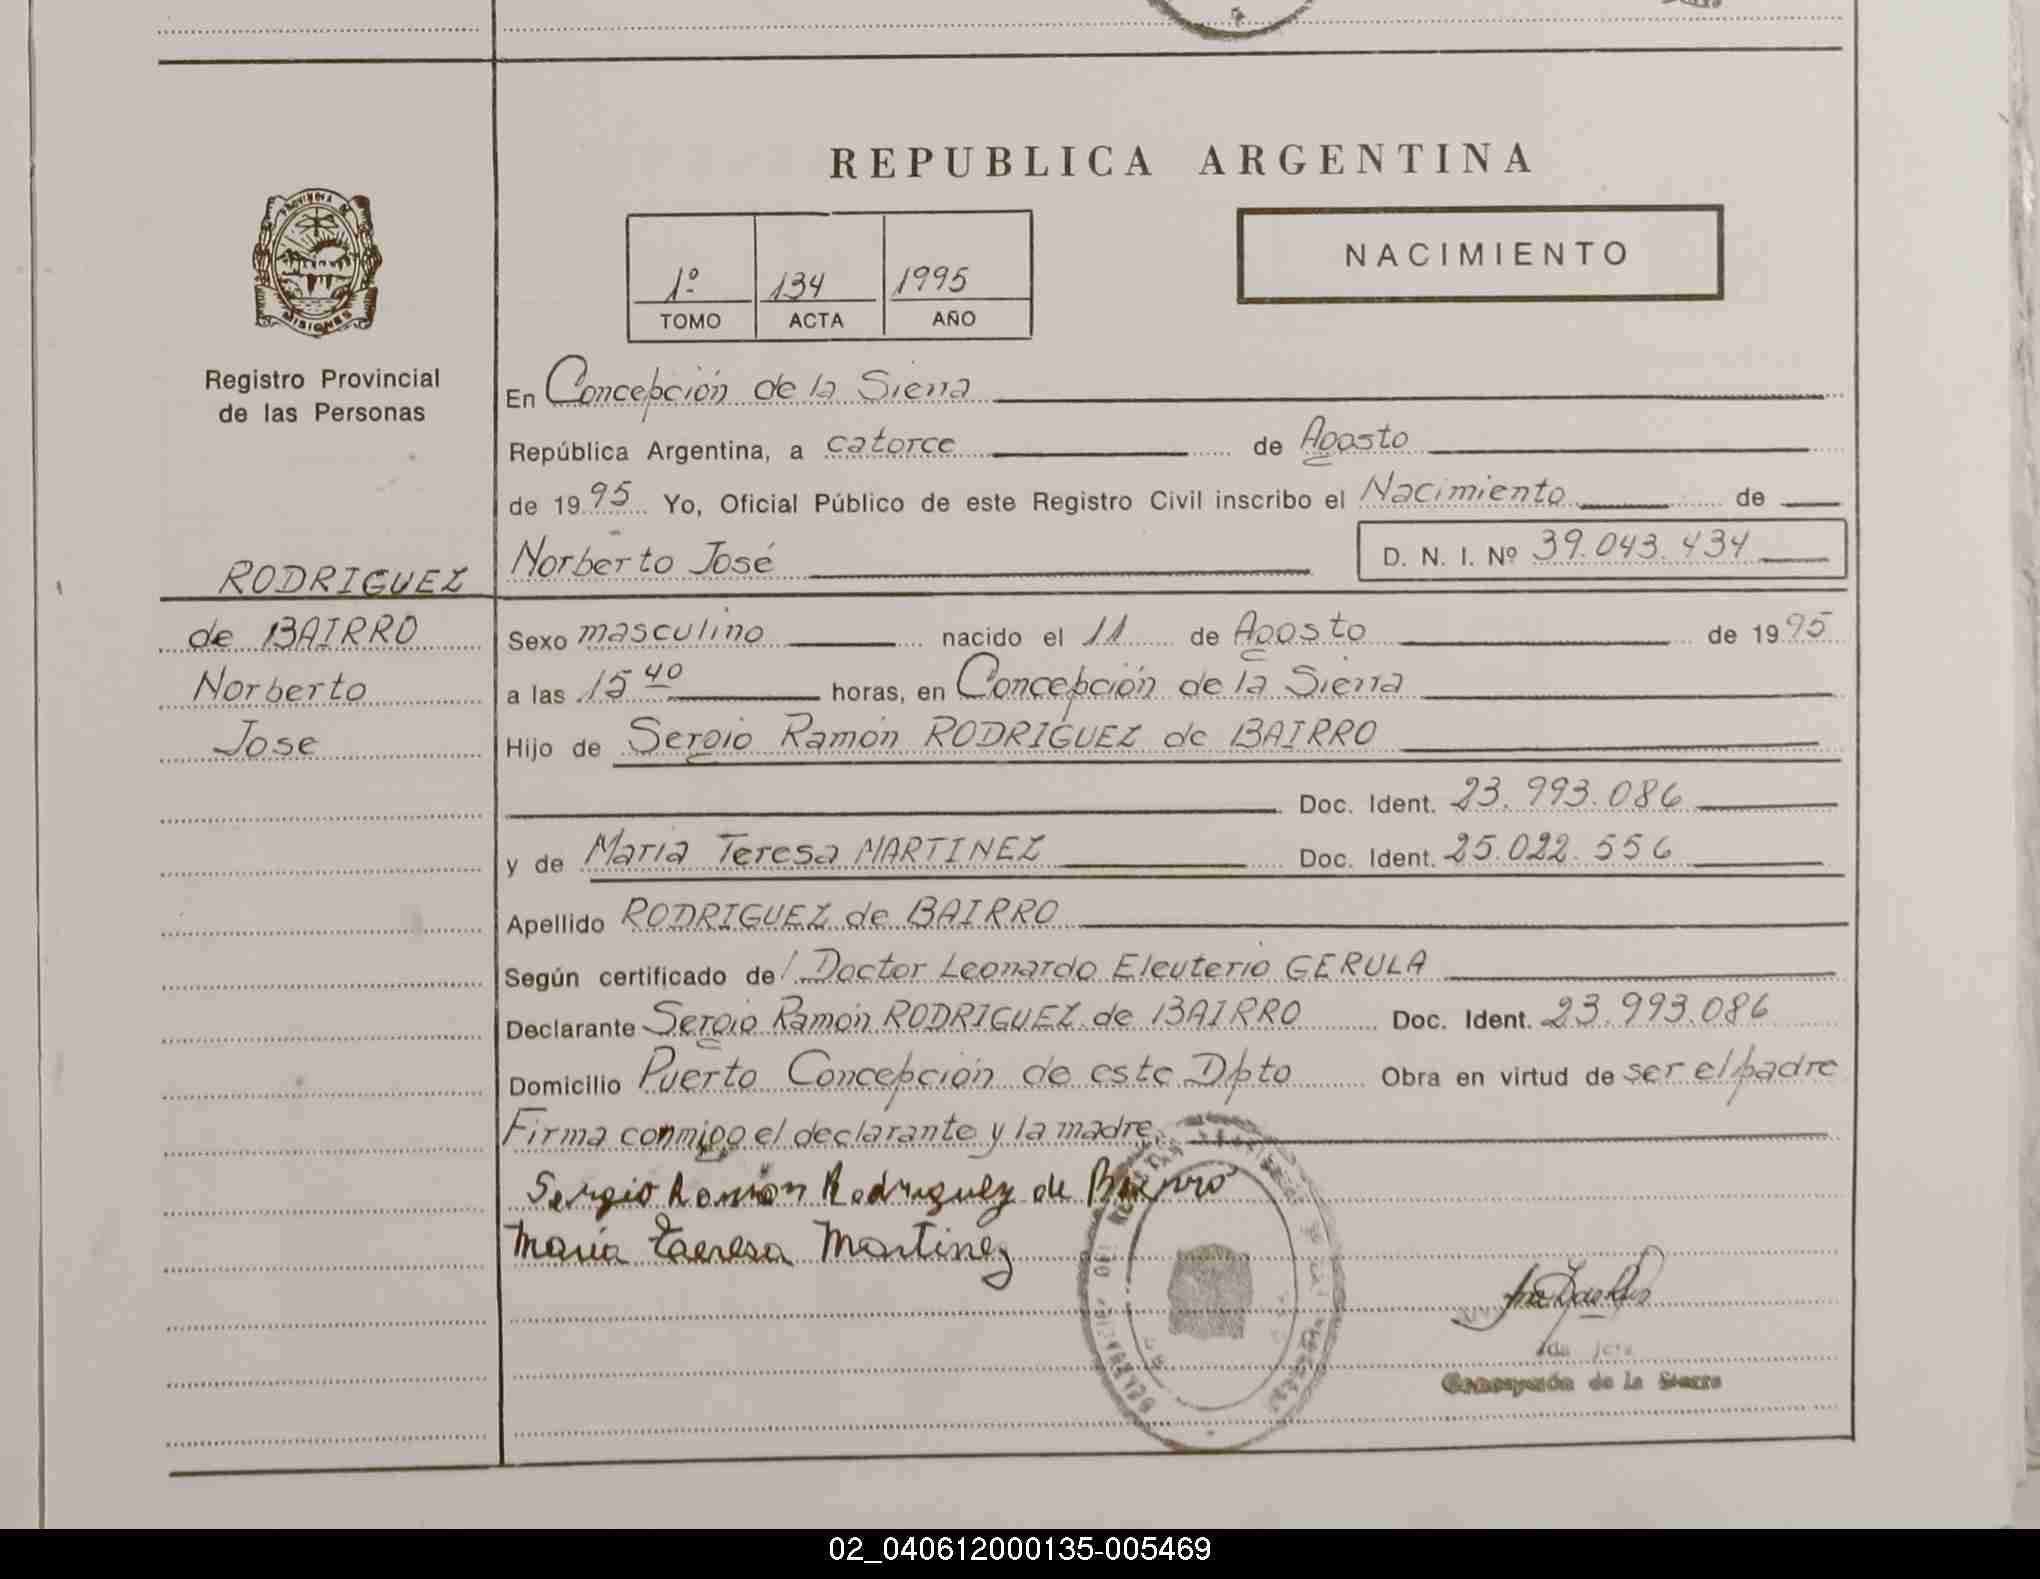 REPUBLICA ARGENTINA
PROVINCIA DE
MISIONES
1º 134 1995
TOMO ACTA AÑO
NACIMIENTO
Registro Provincial
de las Personas
En Concepción de la Sierra
República Argentina, a catorce de Agosto
de 1995 Yo, Oficial Público de este Registro Civil inscribo el Nacimiento de
RODRIGUEZ
de BAIRRO
Norberto
Jose
Norberto José D. N. I. Nº 39.043.434
Sexo masculino nacido el 11 de Agosto de 1995
a las 15 40 horas, en Concepción de la Sierra
Hijo de Sergio Ramón RODRIGUEZ de BAIRRO
Doc. Ident. 23.993.086
y de Maria Teresa MARTINEZ Doc. Ident. 25.022.556
Apellido RODRIGUEZ de BAIRRO
Según certificado de/ Doctor Leonardo Eleuterio GERULA
Declarante Sergio Ramón RODRIGUEZ de BAIRRO Doc. Ident. 23.993.086
Domicilio Puerto Concepción de este Dpto Obra en virtud de ser el padre
Firma conmigo el declarante y la madre
Sergio Ramón Rodriguez de Bairro
María Teeresa Martinez
Concepción de la Sierra
02_040612000135-005469